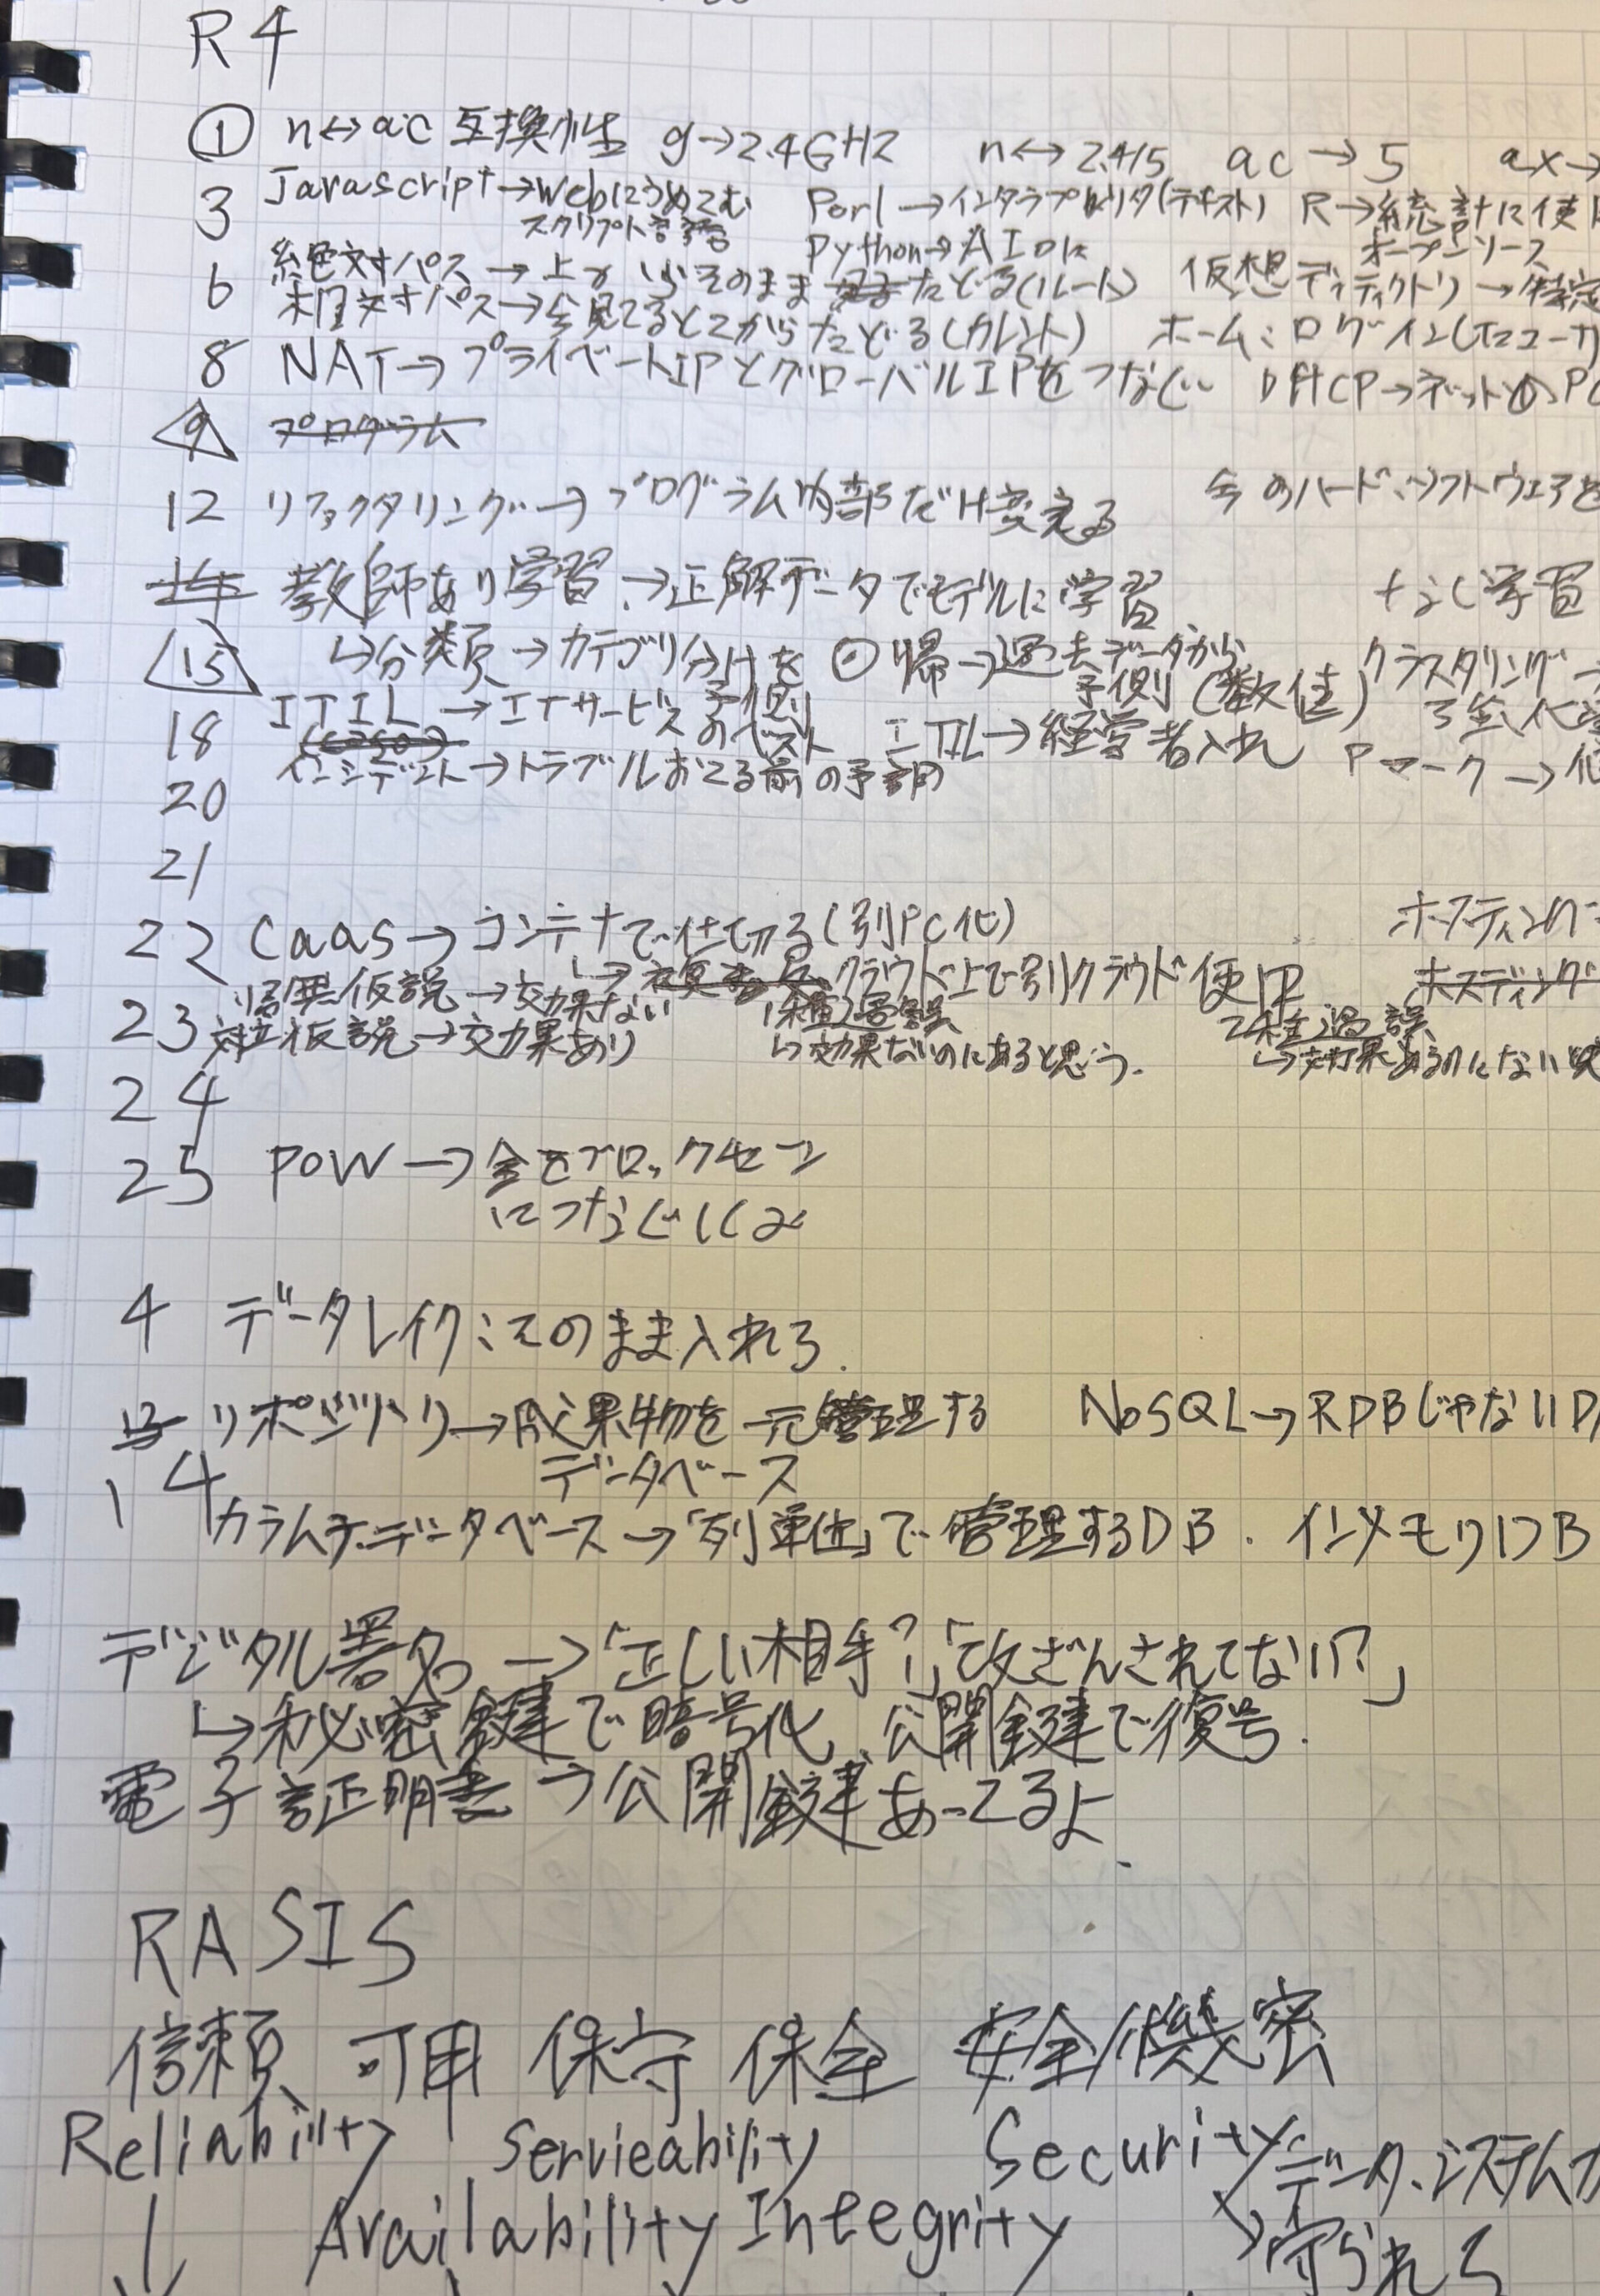 R4
① n↔ac 互換性 g→2.4GHz n↔2.4/5 ac→5 ax→
3 Javascript→Webにうめこむ Perl→インタラプリタ(テキスト) R→統計に使
スクリプト言語 Python→AIとか オープンソース
6 絶対パス→上からそのままたどる(ルート) 仮想ディレクトリ→特定
相対パス→今見てるとこからたどる(カレント) ホーム:ログイン(Tユーザ
8 NAT→プライベートIPとグローバルIPをつなぐ DHCP→ネットの PC
9 プログラム
12 リファクタリング→プログラム内部だけ変える 今のハード、ソフトウェアを
14 教師あり学習→正解データでモデルに学習 なし学習
15 ↳分類→カテゴリ分けを予測 回帰→過去データから予測(数値) クラスタリング
18 ITIL→ITサービスのベスト ITIL→経営者入れ Pマーク→
インシデント→トラブルおこる前の予部
20
21
22 CaaS→コンテナで仕切る(別PC化) ホスティング
↳ クラウド上で別クラウド使用 ホスティング
23 帰無仮説→効果ない 1種過誤 2種過誤
対立仮説→効果あり ↳効果ないのにあると思う. ↳効果あるのにない
24
25 POW→金をブロックチェーン
につなぐしくみ
4 データレイク:そのまま入れろ.
13 リポジトリ→成果物を一元管理する NoSQL→RDBじゃないD
14 データベース
カラムデータベース→「列単位」で管理するDB. インメモリDB
デジタル署名→「正しい相手?」「改ざんされてない?」
↳秘密鍵で暗号化、公開鍵で復号.
電子証明書→公開鍵あってるよ.
RASIS
信頼 可用 保守 保全 安全/機密
Reliability Servieability Security データ、システムが
↓ Availability Integrity ↳守られる